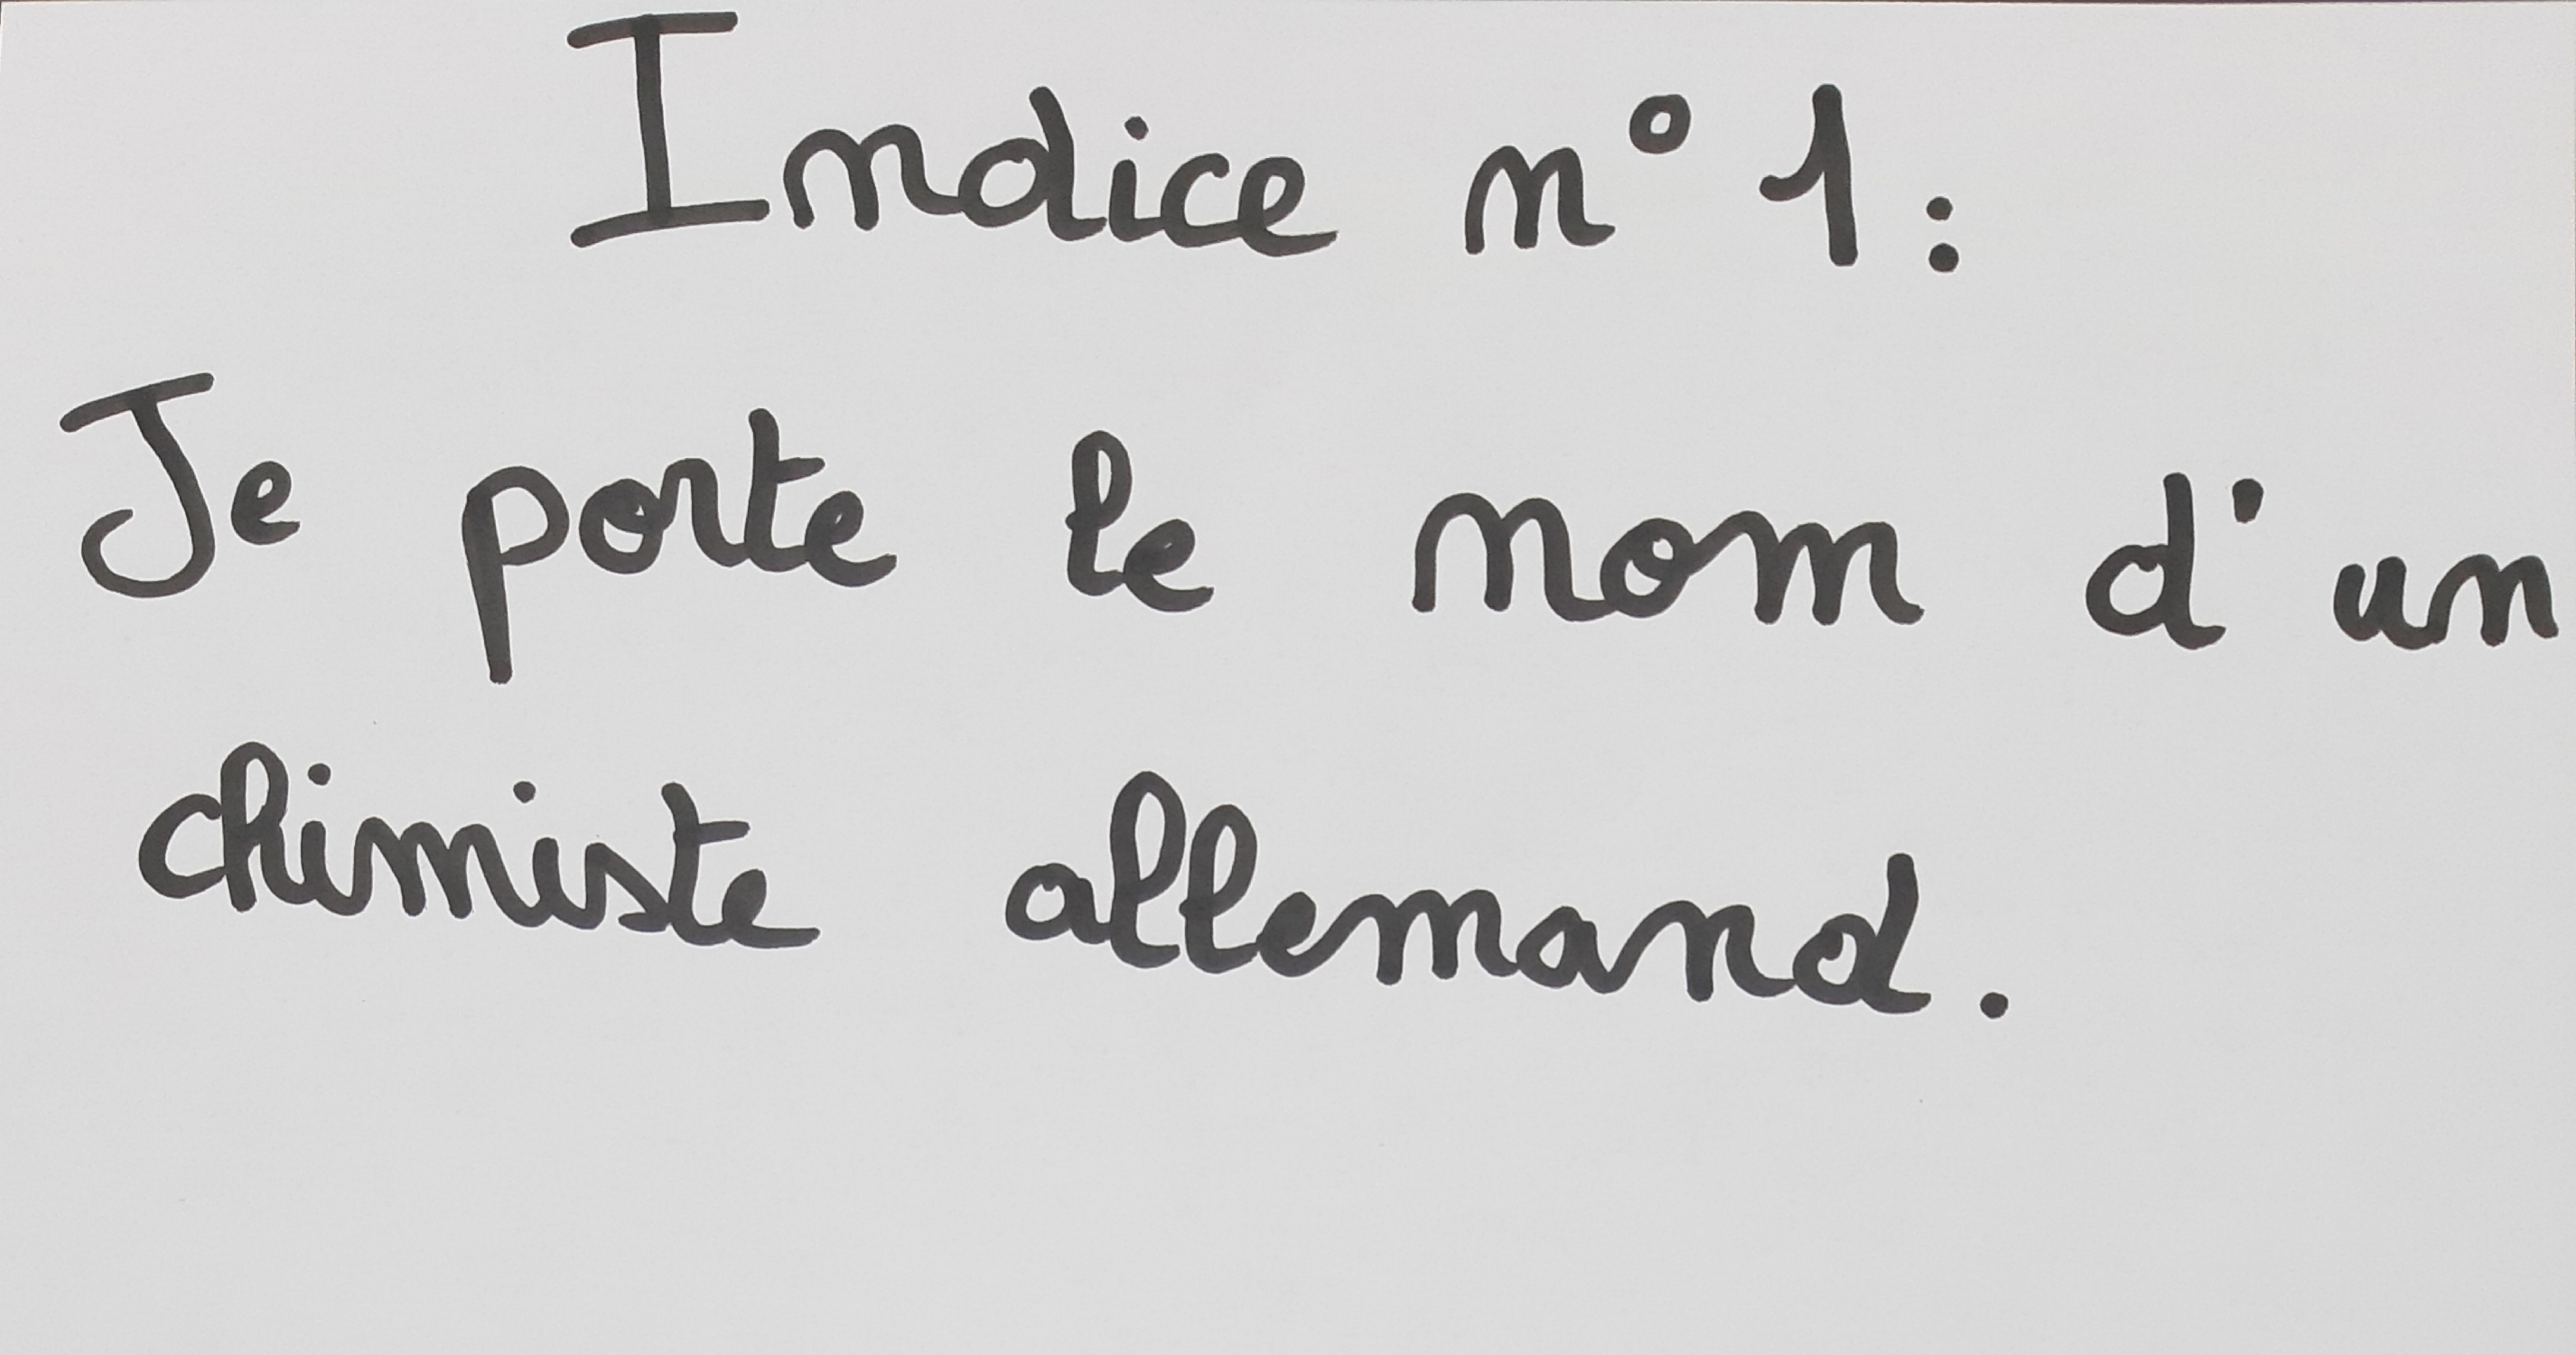 Indice n° 1 :
Je porte le nom d'un
chimiste allemand.